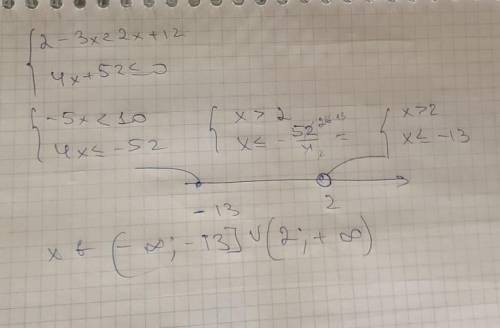 2 - 3x < 2x + 12
4x + 52 ≤ 0
-5x < 10
4x ≤ -52
x > 2
x ≤ - 52/4 =
x > 2
x ≤ -13
-13 2
x ∈ (-∞; -13] ∪ (2; +∞)